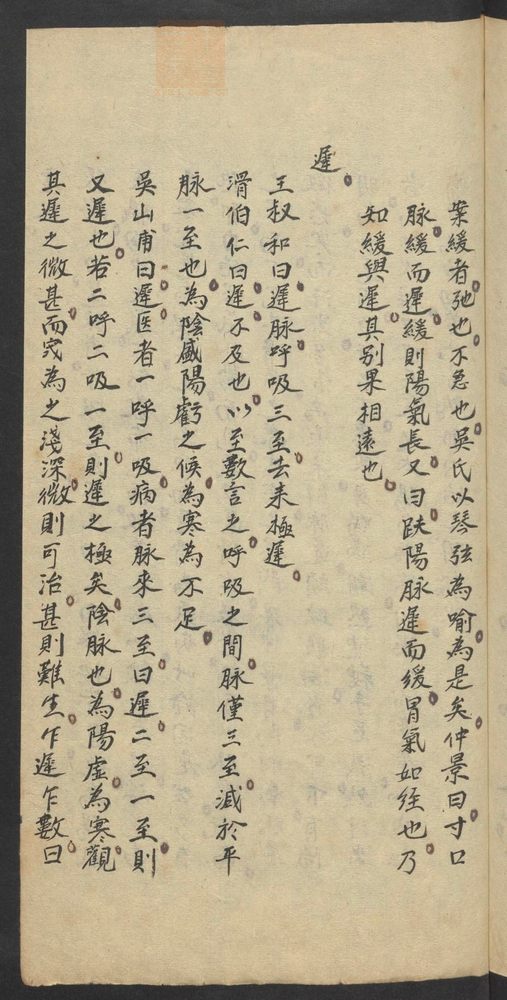 案緩者弛也不急也吳氏以琴弦為喻為是矣仲景曰寸口
脉緩而遲緩則陽氣長又曰趺陽脉遲而緩胃氣如經也乃
知緩與遲其別果相遠也
遲
王叔和曰遲脉呼吸三至去来極遲
滑伯仁曰遲不及也以至數言之呼吸之間脉僅三至減於平
脉一至也為陰盛陽虧之候為寒為不足
吳山甫曰遲医者一呼一吸病者脉來三至曰遲二至一至則
又遲也若二呼二吸一至則遲之極矣陰脉也為陽虛為寒觀
其遲之微甚而為之淺深微則可治甚則難生乍遲乍數曰